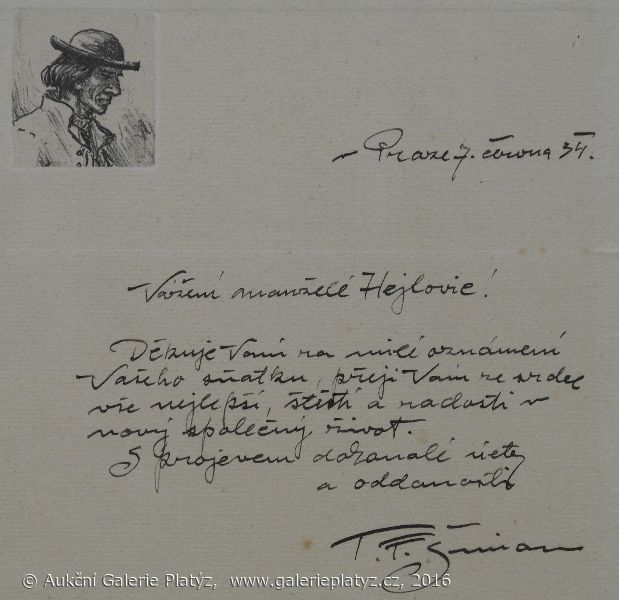 v Praze 7. června 34.
Vážení manželé Hejlovic!
Děkuje Vám za milé oznámení
Vašeho sňatku, přeji Vám ze srdce
vše nejlepší, štěstí a radosti v
nový společný život.
S projevem dokonalé úcty
a oddanosti
T. F. Šimon
© Aukční Galerie Platýz, www.galerieplatyz.cz, 2016